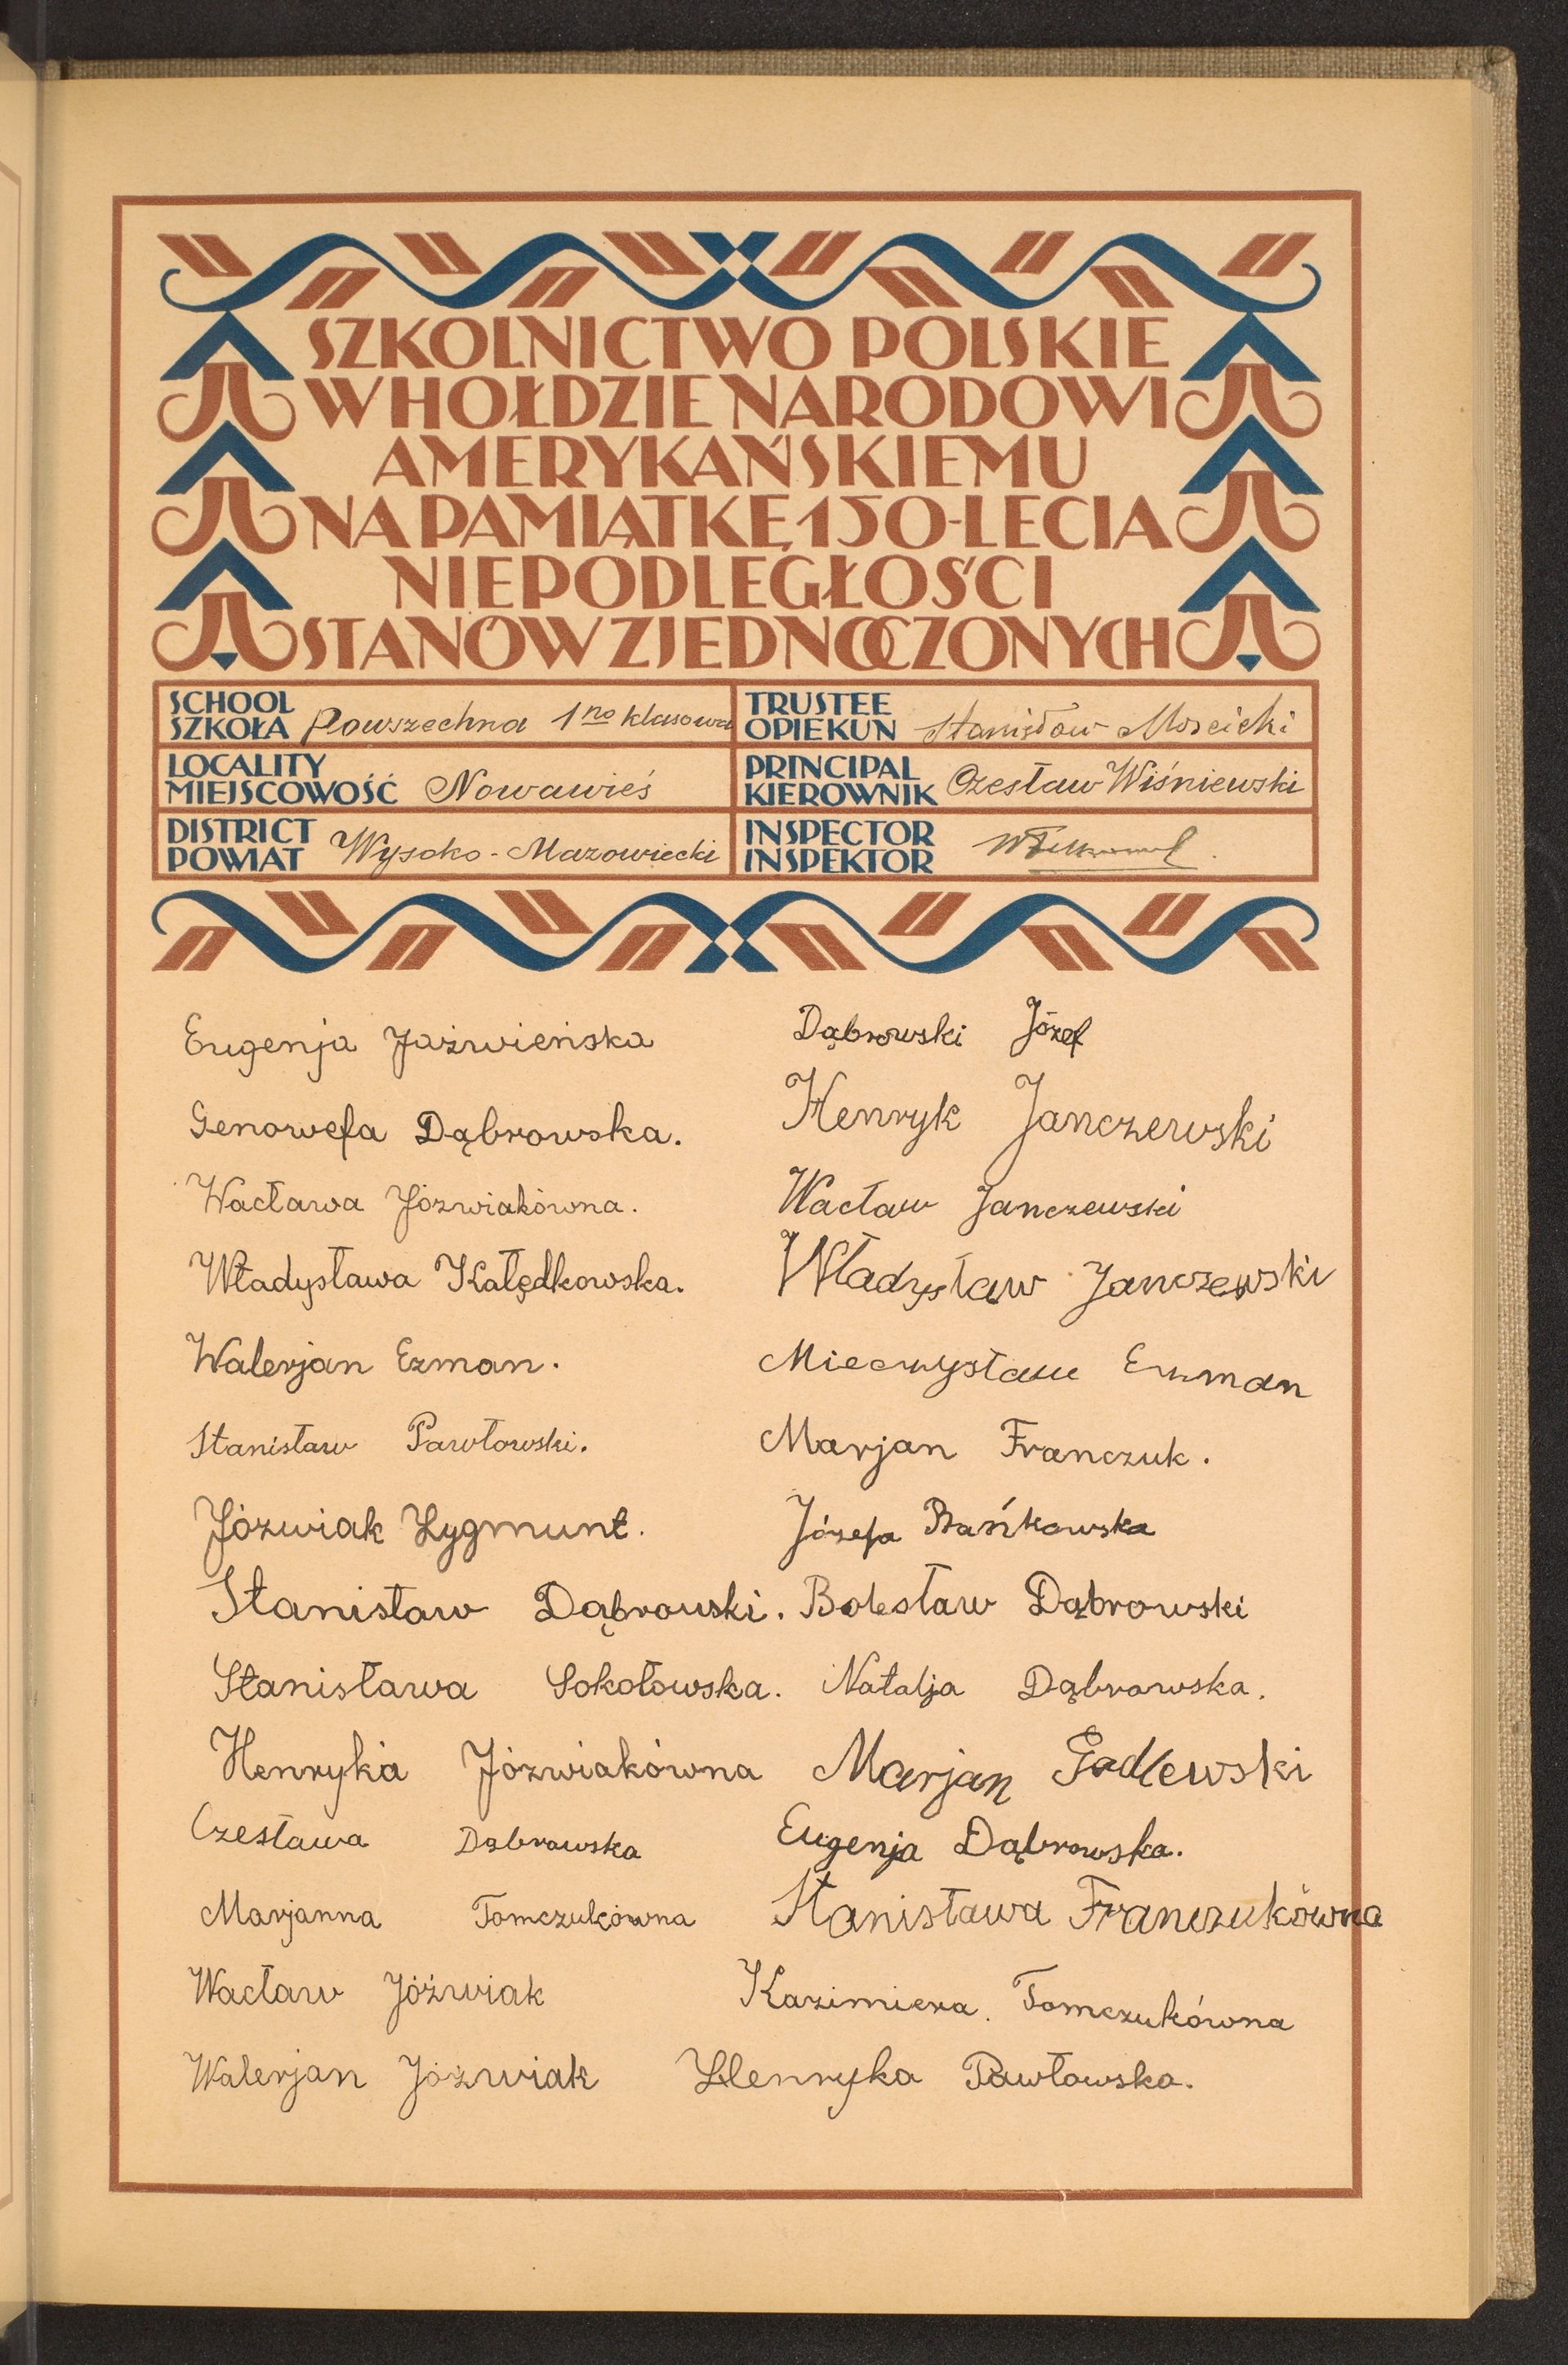 SZKOLNICTWO POLSKIE
W HOŁDZIE NARODOWI
AMERYKAŃSKIEMU
NA PAMIĄTKĘ 150-LECIA
NIEPODLEGŁOŚCI
STANÓW ZJEDNOCZONYCH
SCHOOL
SZKOŁA Powszechna 1no klasowa
TRUSTEE
OPIEKUN Stanisław Mościcki
LOCALITY
MIEJSCOWOŚĆ Nowawieś
PRINCIPAL
KIEROWNIK Czesław Wiśniewski
DISTRICT
POWIAT Wysoko-Mazowiecki
INSPECTOR
INSPEKTOR
Eugenja Jaźwieńska
Genowefa Dąbrowska.
Wacława Józwiakówna.
Władysława Kałędkowska.
Walerjan Ezman.
Stanisław Pawłowski.
Józwiak Zygmunt.
Stanisław Dąbrowski.
Stanisława Sokołowska.
Henryka Józwiakówna
Czesława Dąbrowska
Marjanna Tomczukówna
Wacław Jóźwiak
Walerjan Józwiak
Dąbrowski Józef
Henryk Janczewski
Wacław Janczewski
Władysław Janczewski
Mieczysław Ezman
Marjan Franczuk.
Józefa Bańkowska
Bolesław Dąbrowski
Natalja Dąbrowska.
Marjan Godlewski
Eugenja Dąbrowska.
Stanisława Franczukówna
Kazimiera Tomczukówna
Henryka Pawłowska.